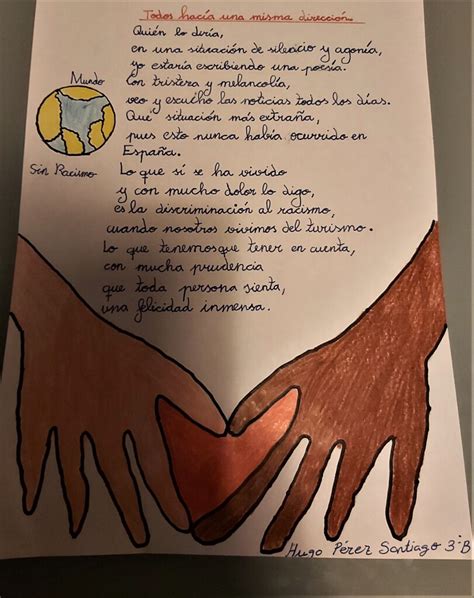 Todos hacía una misma dirección.
Quién lo diría,
en una situación de silencio y agonía,
yo estaría escribiendo una poesía.
Con tristeza y melancolía,
veo y escucho las noticias todos los días.
Qué situación más extraña,
pues esto nunca había ocurrido en
España.
Mundo
Sin Racismo
Lo que sí se ha vivido
y con mucho dolor lo digo,
es la discriminación al racismo,
cuando nosotros vivimos del turismo.
Lo que tenemosque tener en cuenta,
con mucha prudencia
que toda persona sienta,
una felicidad inmensa.
Hugo Pérez Santiago 3ºB